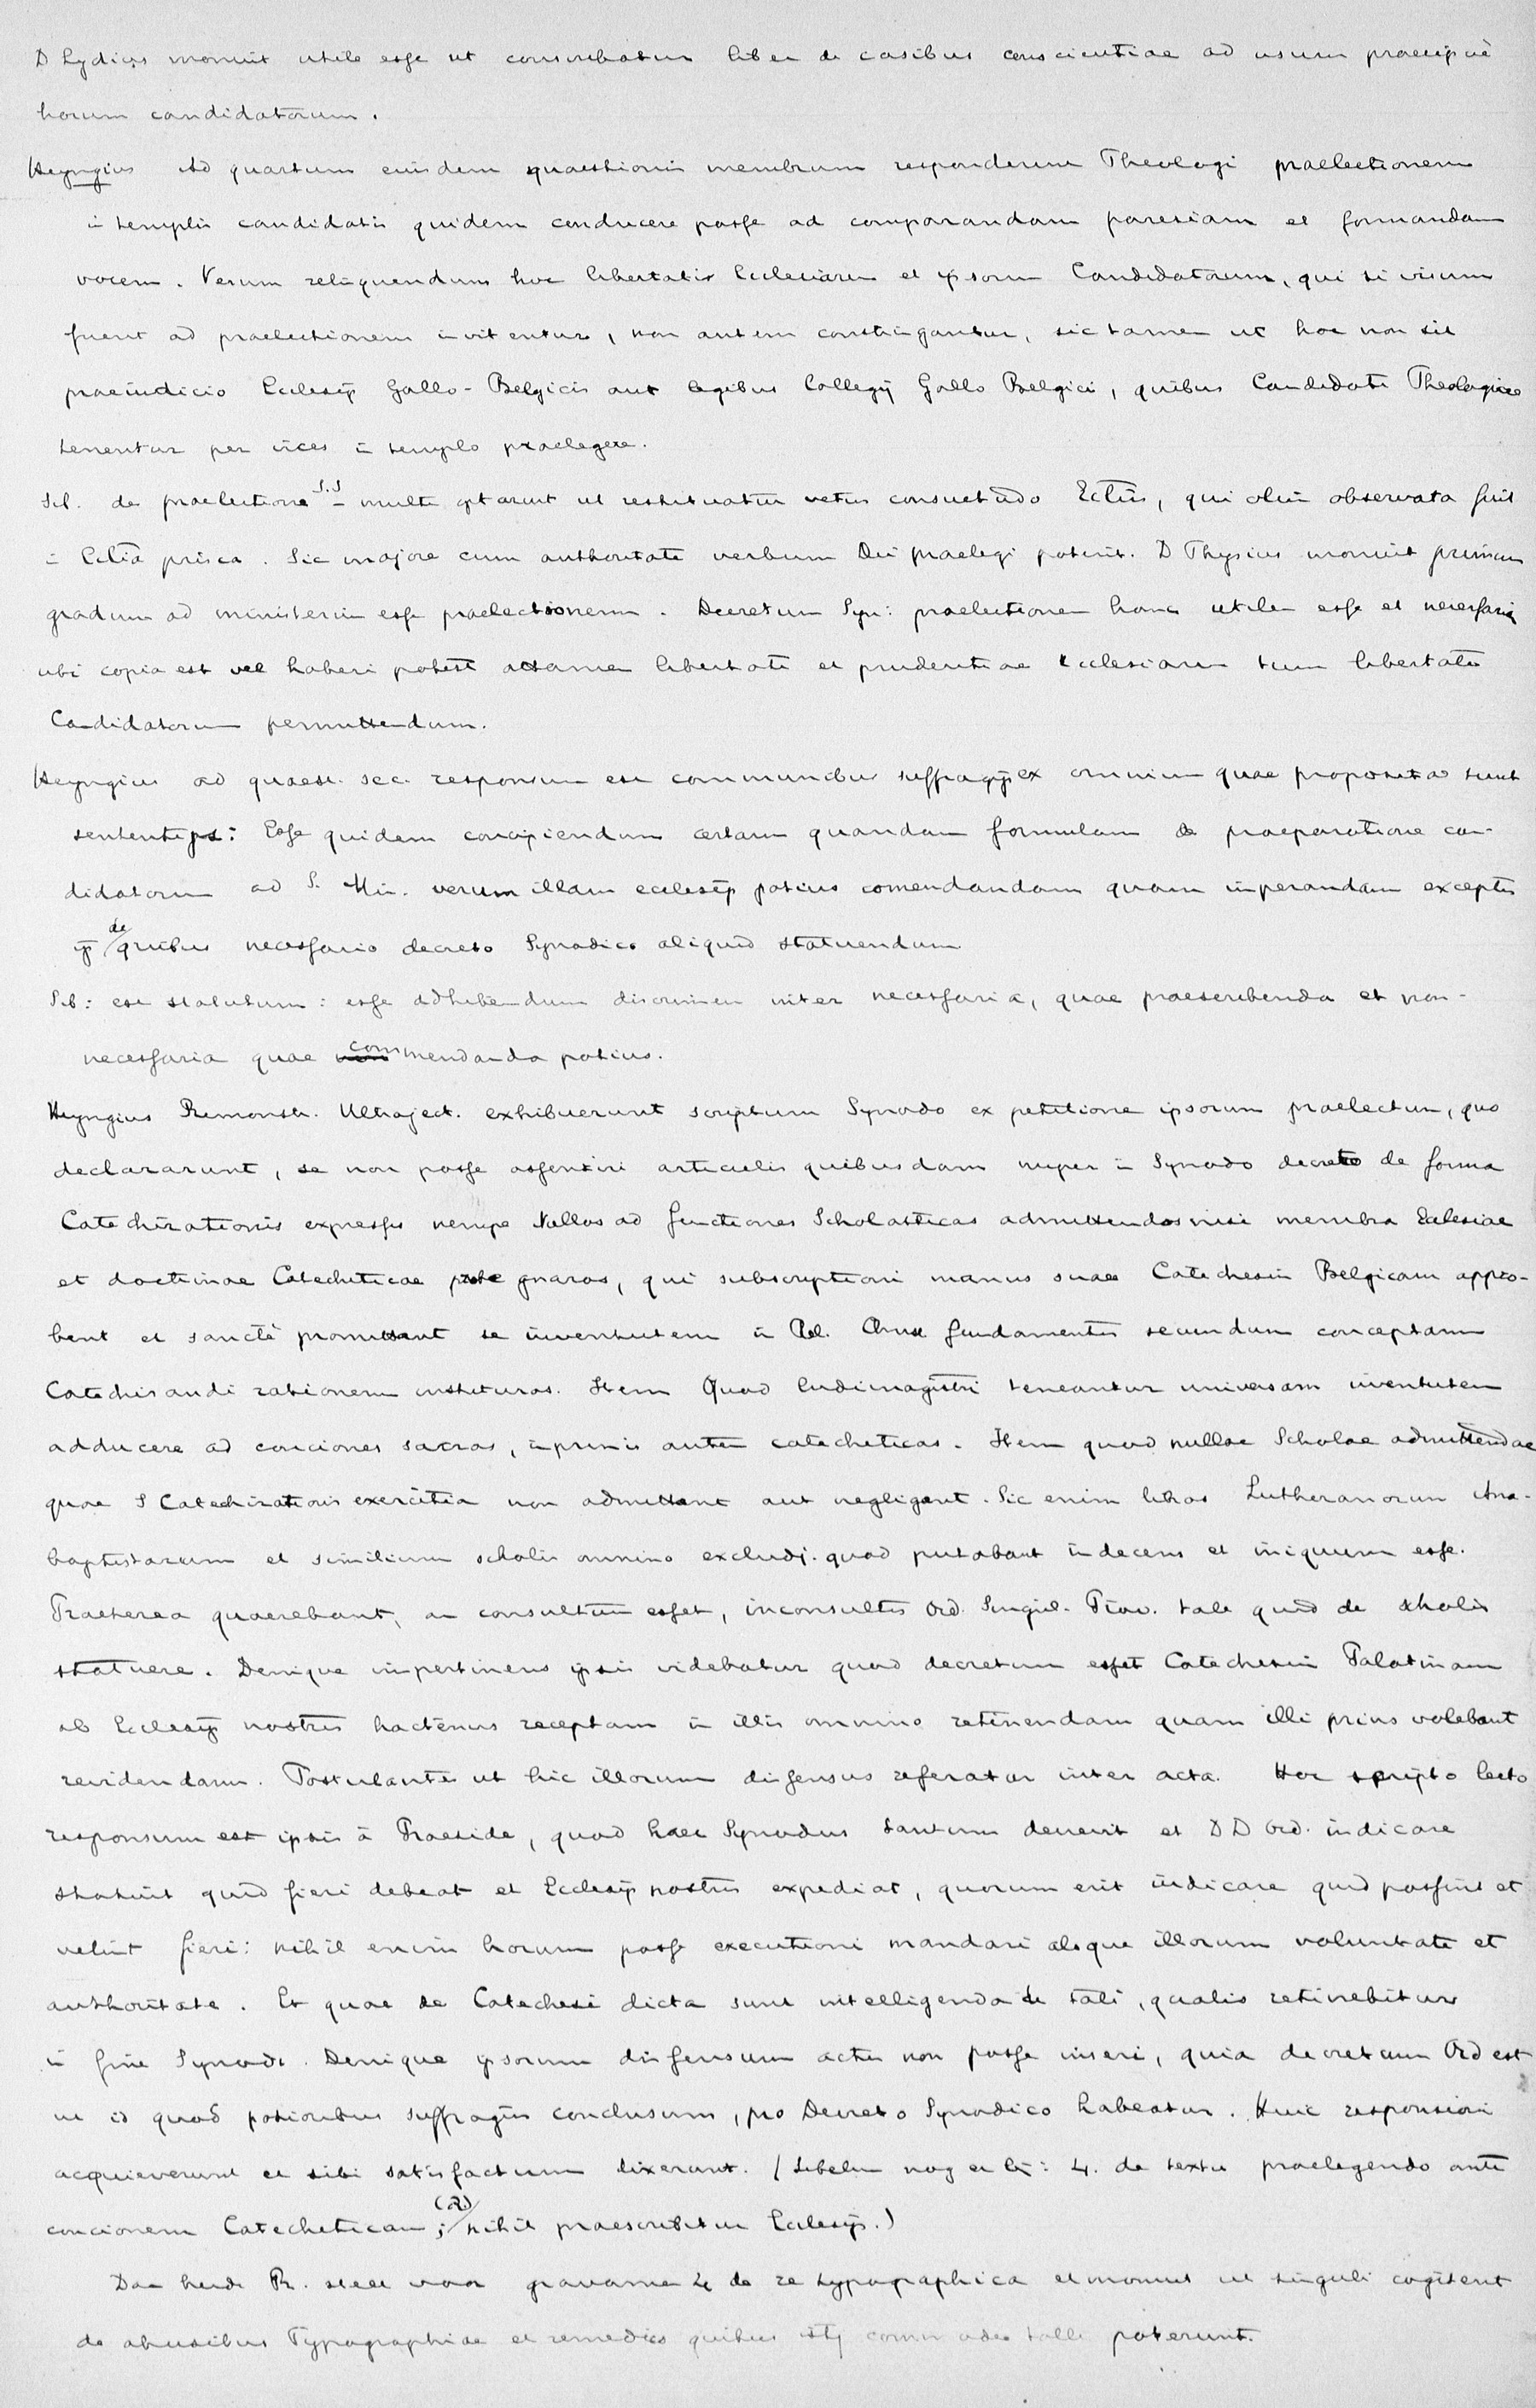 D Lydius monuit utile esse ut conscribatur liber de casibus conscientiae ad usum praecipuè
horum candidatorum.
Heyngius Ad quartum eiusdem quaestionis membrum responderunt Theologi praelectionem
in templis candidatis quidem conducere posse ad comparandam paresiam et formandam
vocem. Verum relinquendum hoc libertatis Ecclesiarum et ipsorum Candidatorum, qui si visum
fuerit ad praelectionem invitentur, non autem constringantur, sic tamen ut hoc non sit
praeiudicio Ecclesijs Gallo-Belgicis aut legibus Collegij Gallo Belgici, quibus Candidati Theologiae
tenentur per vices in templo praelegere.
Sib. de praelectione S.S - multi optarunt ut restituatur vetus consuetudo Ecclis, qui olim observata fuit
in Eclia prisca. Sic majore cum authoritate verbum Dei praelegi poterit. D Thysius monuit primum
gradum ad ministerium esse praelectionem. Decretum Syn: praelectionem hanc utilem esse et necessaria
ubi copia est vel haberi potest attamen libertati et prudentiae Ecclesiarum tum libertati
Candidatorum permittendum.
Heyngius ad quaest. sec. responsum est communibus suffragijs ex omnium quae propositae sunt
sententijs: Esse quidem concipiendam certam quandam formulam de praeparatione can-
didatorum ad S. Min. verum illam ecclesijs potius comendandam quam imperandam exceptis
ijs de quibus necessario decreto Synodico aliquid statuendum
Sib: est statutum: esse adhibendum discrimen inter necessaria, quae praescribenda et non-
necessaria quae commendanda potius.
Heyngius Remonstr. Ultraject. exhibuerunt scriptum Synodo ex petitione ipsorum praelectum, quo
declararunt, se non posse assentiri articulis quibusdam nuper in Synodo decreto de forma
Catechizationis expressis nempe Nullos ad functiones Scholasticas admittendos nisi membra Ecclesiae
et doctrinae Catecheticae probe gnaros, qui subscriptioni manus suae Catechesin Belgicam appro-
bent et sanctè promittant se iuventutem in Rel. Chris fundamentis secundum conceptam
Catechisandi rationem instituros. Item Quod ludimagistri teneantur universam iuventutem
adducere ad conciones sacras, inprimis autem catecheticas. Item quod nullae Scholae admittendae
quae S Catechizationis exercitia non admittant aut negligant. Sic enim libros Lutheranorum Ana-
baptistarum et similium scholis omnino excludi. quod putabant indecens et iniquum esse.
Praeterea quaerebant, an consultum esset, inconsultis Ord. Singul. Prov. tale quid de scholis
statuere. Denique impertinens ipsis videbatur quod decretum esset Catechesin Palatinam
ab Ecclesijs nostris hactenus receptam in illis omnino retinendam quam illi prius volebant
revidendam. Postulantes ut hic illorum dissensus referatur inter acta. Hoc scripto lecto
responsum est ipsis à Praeside, quod haec Synodus tantum decrevit et DD Ord. indicare
statuit quid fieri debeat et Ecclesijs nostris expediat, quorum erit iudicare quid possint et
velint fieri: nihil enim horum posse executioni mandari absque illorum voluntate et
authoritate. Et quae de Catechesi dicta sunt intelligenda de tali, qualis retinebitur
in fine Synodi. Denique ipsorum dissensum actis non posse inseri, quia decretum Ord est
ut id quod potioribus suffragiis conclusum, pro Decreto Synodico habeatur. Huic responsioni
acquieverunt et sibi satisfactum dixerant. (Sibelin nog er bij: 4. de textu praelegendo ante
concionem Catecheticam; (R) nihil praescribitur Ecclesijs.)
Dan heeft Pr. steeds voor gravamen 4 de re typographica et monuit ut singuli cogitent
de abusibus Typographiae et remedies quibus isti commodes tolli poterunt.